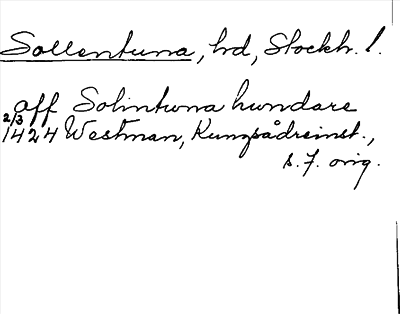 Sollentuna, hd, Stockh. l.
aff Solintuna hundare
2/3 1424 Westman, Kungsådreinst.,
s. 7. orig.